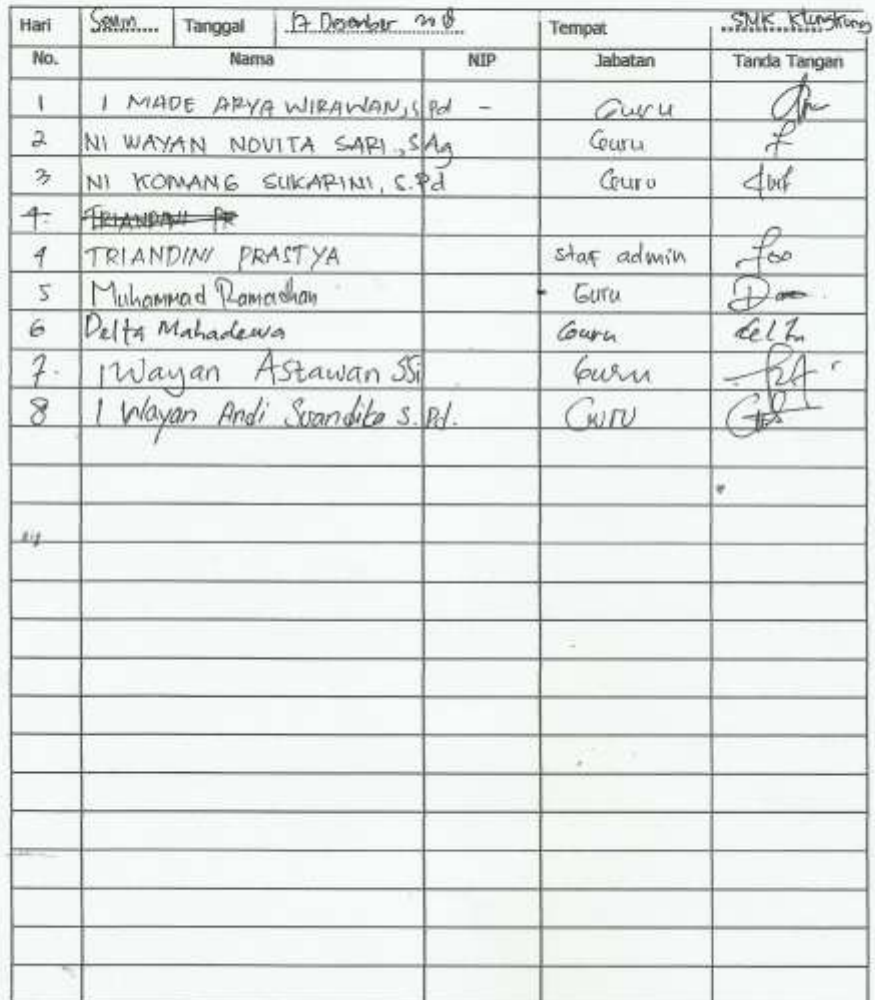 Hari Senin Tanggal 17 Desember 2018 Tempat SMK Klungkung
No. Nama NIP Jabatan Tanda Tangan
1 I MADE ARYA WIRAWAN, S.Pd - Guru
2 NI WAYAN NOVITA SARI, S.Ag Guru
3 NI KOMANG SUKARINI, S.Pd Guru
4. TRIANDINI PR
4 TRIANDINI PRASTYA staf admin
5 Muhammad Ramadhan - Guru
6 Delta Mahadewa Guru delta
7. I Wayan Astawan SSi Guru
8 I Wayan Andi Suandika S.Pd. GURU